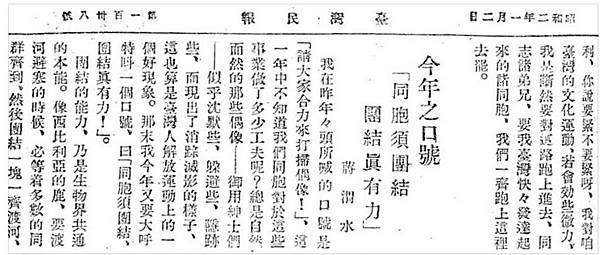 昭和二年一月二日
臺灣民報
第一百卅八號
利、你說要緊不要緊呀、我對咱
臺灣的文化運動、若會効些微力、
我是斷然要對這路跑上進去、同
志諸弟兄、要我臺灣快々發達起
來的諸同胞、我們一齊跑上這裡
去罷。
今年之口號
「同胞須團結
團結眞有力」
蔣渭水
我在昨年々頭所喊的口號是
「請大家合力來打掃偶像！」、這
一年中不知道我們同胞對於這些
事業做了多少工夫呢？總是自然
而然的那些偶像——御用紳士們
——似乎沈默些、躱避些、隱跡
些、而現出了消蹤滅影的樣子、
這也算是臺灣人解放運動上的一
個好現象。那末我今年又要大呼
特呌一個口號、曰「同胞須團結、
團結眞有力！」。
團結的能力、乃是生物界共通
的本能。像西比利亞的鹿、要渡
河避寒的時候、必等着多數的同
群齊到、然後團結一塊一齊渡河、